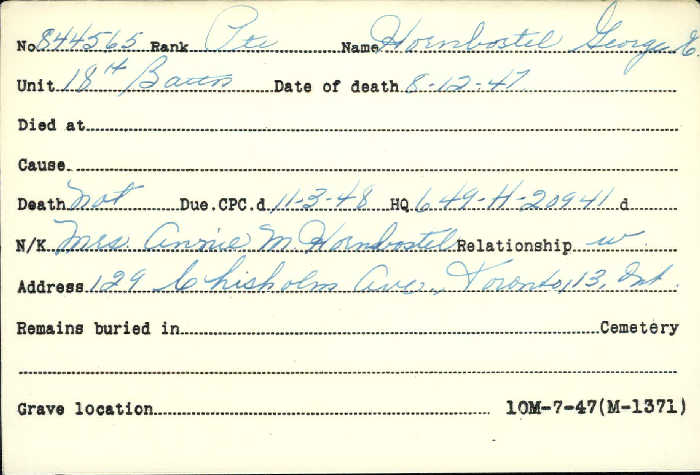 No 844565 Rank Pte Name Hornbostel George E.
Unit 18th Battn Date of death 8-12-47
Died at
Cause
Death not Due.CPC.d 11-3-48 HQ 649-H-20941 d
N/K Mrs. Annie M Hornbostel Relationship w
Address 129 Chisholm Ave., Toronto, 13, Ont.
Remains buried in Cemetery
Grave location 10M-7-47(M-1371)